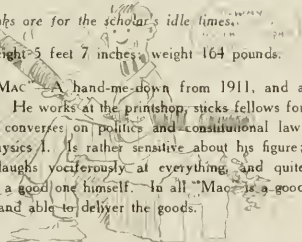 ks are for the scholar's idle times.
ight 5 feet 7 inches, weight 164 pounds.
Mac — A hand-me-down from 1911, and a
He works at the printshop, sticks fellows for
converses on politics and constitutional law
ysics I. Is rather sensitive about his figure;
laughs vociferously at everything, and quite
a good one himself. In all "Mac" is a good
and able to deliver the goods.